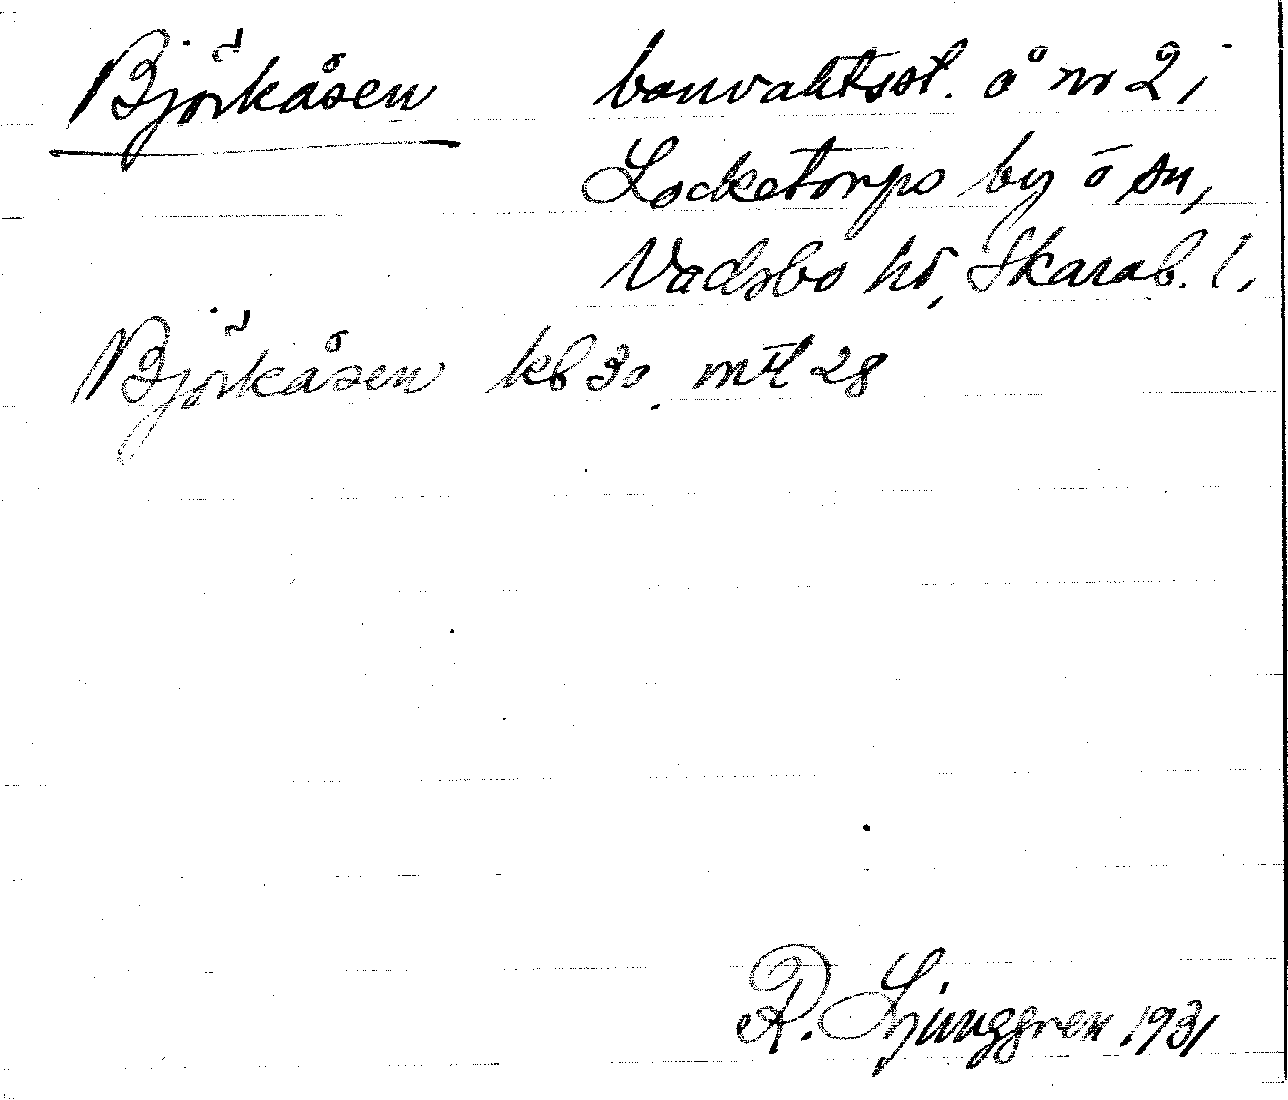 Björkåsen banvaktsst. å nr 2 i
Locketorps by o sn,
Vadsbo hd, Skarab. l.
Björkåsen kb 30 mtl 28
R. Ljunggren 1931